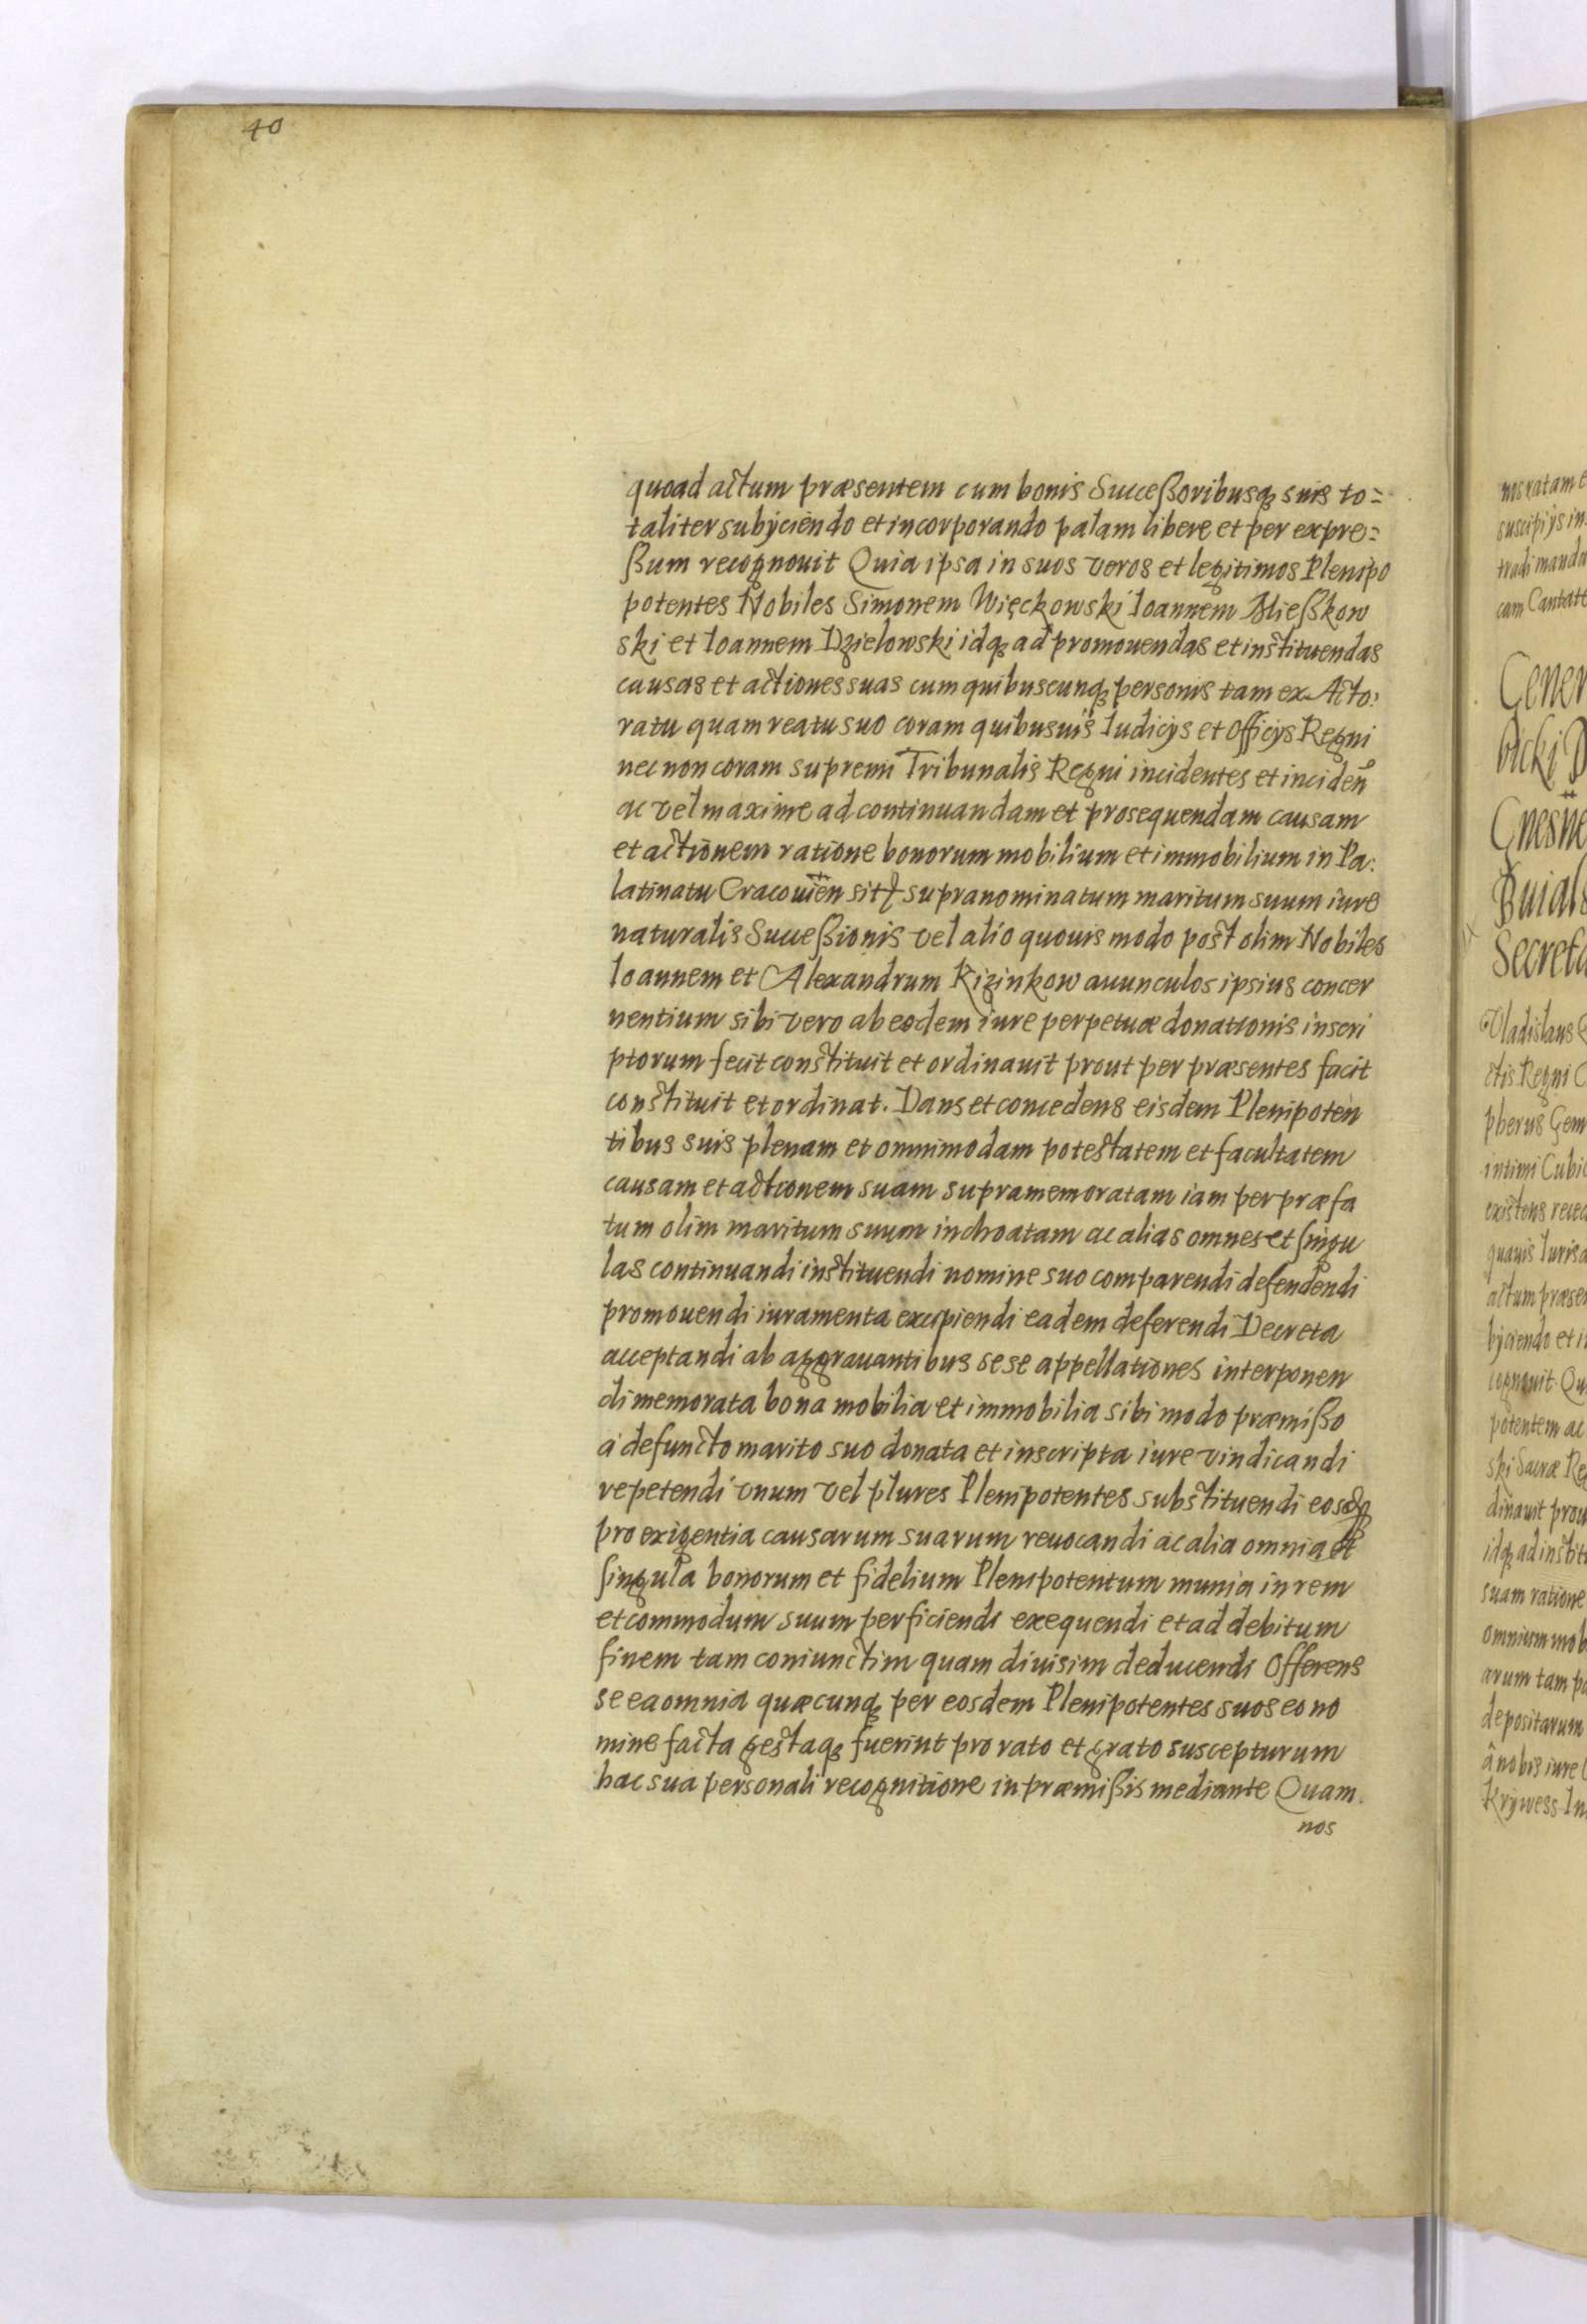 40
quoad actum præsentem cum bonis Succeßoribusq suis to=
taliter subijciendo et incorporando palam libere et per expre=
ßum recognouit Quia ipsa in suos veros et legitimos Plenipo
potentes Nobiles Simonem Więckowski Ioannem Mießkow
ski et Ioannem Dzielowski idq ad promouendas et instituendas
causas et actiones suas cum quibuscunq personis tam ex Acto:
ratu quam reatu suo coram quibusuis Iudicijs et Officijs Regni
nec non coram supremi Tribunalis Regni incidentes et inciden
ac vel maxime ad continuandam et prosequendam causam
et actionem ratione bonorum mobilium et immobilium in Pa:
latinatu Cracouien sit supranominatum maritum suum iure
naturalis Succeßionis vel alio quouis modo post olim Nobiles
Ioannem et Alexandrum Rizinkow auunculos ipsius concer
nentium sibi vero ab eodem iure perpetuæ donationis inscri
ptorum fecit constituit et ordinauit prout per præsentes facit
constituit et ordinat. Dans et concedens eisdem Plenipoten
tibus suis plenam et omnimodam potestatem et facultatem
causam et actionem suam supramemoratam iam per præfa
tum olim maritum suum inchoatam ac alias omnes et singu
las continuandi instituendi nomine suo comparendi defendendi
promouendi iuramenta excipiendi eadem deferendi Decreta
acceptandi ab aggrauantibus sese appellationes interponen
di memorata bona mobilia et immobilia sibi modo præmißo
à defuncto marito suo donata et inscripta iure vindicandi
repetendi vnum vel plures Plenipotentes substituendi eosq
pro exigentia causarum suarum reuocandi ac alia omnia et
singula bonorum et fidelium Plenipotentum munia in rem
et commodum suum perficiendi exequendi et ad debitum
finem tam coniunctim quam diuisim deducendi Offerens
se ea omnia quæcunq per eosdem Plenipotentes suos eo no
mine facta gestaq fuerint pro rato et grato suscepturum
hac sua personali recognitione in præmißis mediante Quam
nos
ms ratam e
suscipijs in
tradi manda
cam Cantatt
Gener
bicki D
Gnesne
Buials
Secreta
Vladislaus
ctis Regni C
pberus Gem
intimi Cubic
existens reced
quauis Iurisd
actum præsen
bijciendo et i
cognouit Qu
potentem ac
ski Sacræ Re
dinauit prou
idq ad institu
suam ratione
omnium mob
arum tam pe
depositarum
à nobis iure
Krijwess In